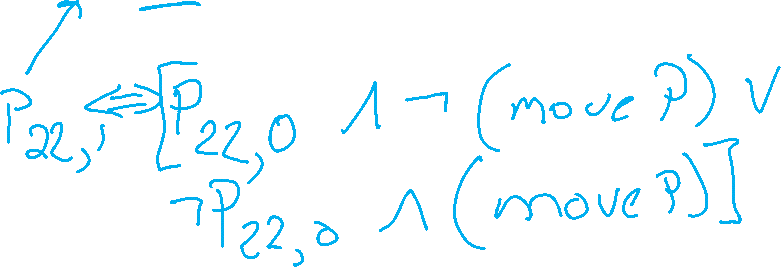 P₂₂,₁ ⇔ [P₂₂,₀ ∧ ¬ (move P) ∨
¬P₂₂,₀ ∧ (move P)]